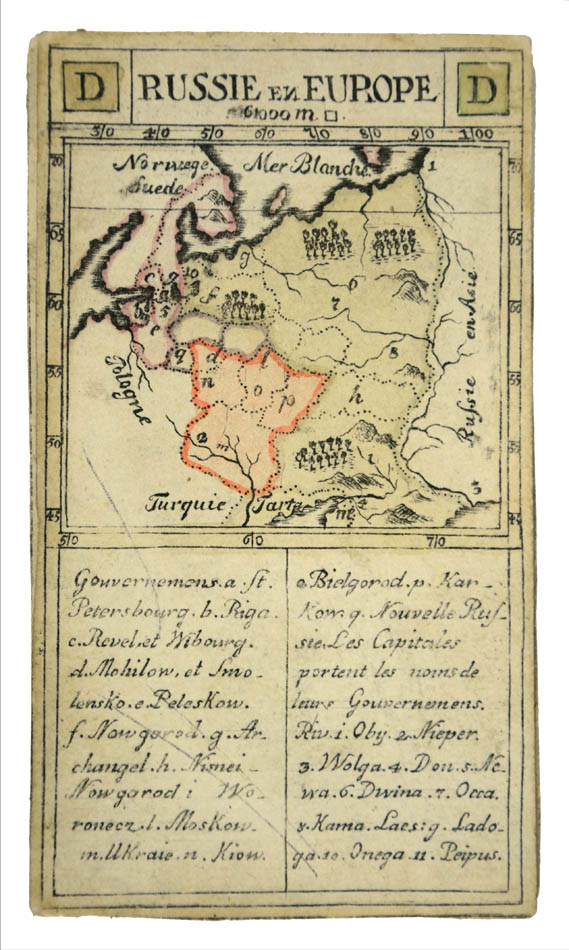 D RUSSIE EN EUROPE D
61000 m. □.
3/0 4/0 5/0 6/0 7/0 8/0 9/0 1/00
70 70
Norwege Mer Blanche 1
Suede
65 65
g
6
60 f 7 60
Russie en Asie
e 8
q d l
55 n o p h 55
Pologne
50 a m i 50
Turquie Tarta m 4 3
45 45
5/0 6/0 7/0
Gouvernemens. a. St.
Petersbourg. b. Riga.
c. Revel. et Wibourg.
d. Mohilow, et Smo-
lensko. e. Peleskow.
f. Nowgorod. g. Ar-
changel. h. Nisnei-
Nowgarod i Wo-
ronecz. l. Moskow.
m. UKraie. n. Kiow.
o Bielgorod. p. Kar-
Kow. q. Nouvelle Rus-
sie. Les Capitales
portent les noms de
leurs Gouvernemens.
Riv. 1. Oby. 2. Nieper.
3. Wolga. 4. Don. 5. Ne-
wa. 6. Dwina. 7. Occa.
8. Kama. Lacs: 9. Lado-
ga. 10. Onega. 11. Peipus.